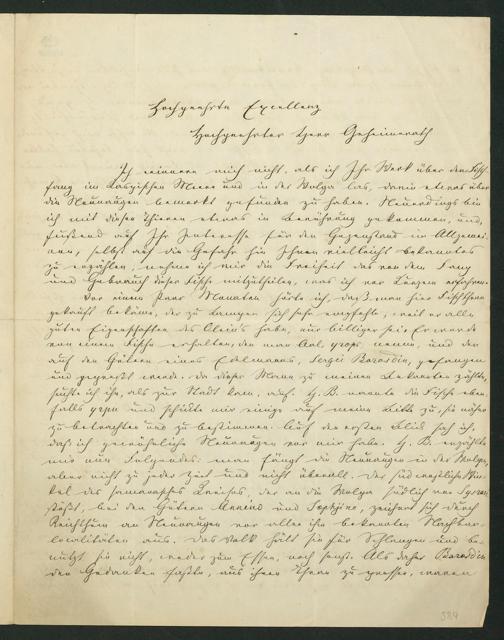 Hochgeehrte Excellenz
Hochgeehrter Herr Geheimerath
Ich erinnere mich nicht, als ich Ihr Werk über den Fisch-
fang im Caspischen Meere und in der Wolga las, darin etwas über
die Neunaugen bemerkt gefunden zu haben. Neuerdings bin
ich mit diesen Thieren etwas in Berührung gekommen, und,
fußend auf Ihr Interesse für den Gegenstand im Allgemei-
nen, selbst auf die Gefahr hin Ihnen vielleicht bekanntes
zu erzählen, nehme ich mir die Freiheit das von dem Fang
und Gebrauch dieser Fische mitzutheilen, was ich vor Kurzem erfahren.
Vor einem Paar Monaten hörte ich, daß man hier Fischthran
gekauft bekäme, der zu Lampen sich sehr empfehle, weil er alle
guten Eigenschaften des Oleins habe, nur billiger sei. Er werde
von einem Fische erhalten, den man Aal, угорь nenne, und der
auf den Gütern eines Edelmanns, Sergei Borosdin, gefangen
und gepresst werde. Da dieser Mann zu meinen Bekannten zählte,
suchte ich ihn, als er zur Stadt kam, auf. H. B. nannte die Fische eben-
falls угри und schickte mir einige auf meine Bitte zu, sie näher
zu betrachten und zu bestimmen. Auf den ersten Blick sah ich,
daß ich gewöhnliche Neunaugen vor mir habe. H. B. erzählte
mir nun Folgendes: man fängt die Neunaugen in der Wolga,
aber nicht zu jeder Zeit und nicht überall. Der südwestliche Win-
kel des Kreises, der an die Wolga südlich von Sysran
stößt, bei den Gütern und zeichnet sich durch
Reichthum an Neunaugen vor allen ihm bekannten Nachbar-
localitäten aus. Das Volk hält sie für Schlangen und be-
nutzt sie nicht, weder zum Essen, noch sonst. Als daher Borosdin
den Gedanken faßte, aus ihnen Thran zu pressen, waren